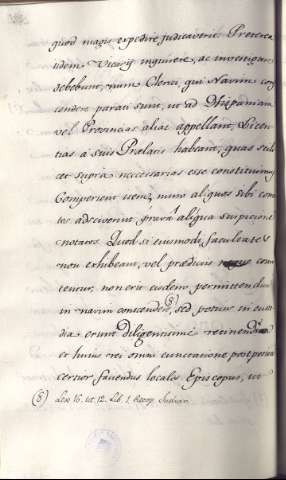 quod magis expedire judicaverit. Præterea
iidem Vicarij inquirere, ac investigare
debebunt, num Clerici, qui Navim con
scendere parati sunt, ut ad Hispaniam
vel Provincias alias appellant, Licen
tias à suis Prælatis habeant, quas scilicet
et supra necessarias esse constituimus
Comperient item, num aliquos sibi comi
tes adsciverint, pravâ aliqua suspicione
notatos. Quod si ejusmodi facultates
non exhibeant, vel prædictis com
tentur, non erit eisdem permittendum
in navim conscendere (§), sed potius in custo
dia erunt diligentissime retinendi
et hujus rei omni cunctatione postposita
certior faciendus localis Episcopus, ut
(§) Lex 16. tit. 12. Lib. 1. Recop. Indiar.